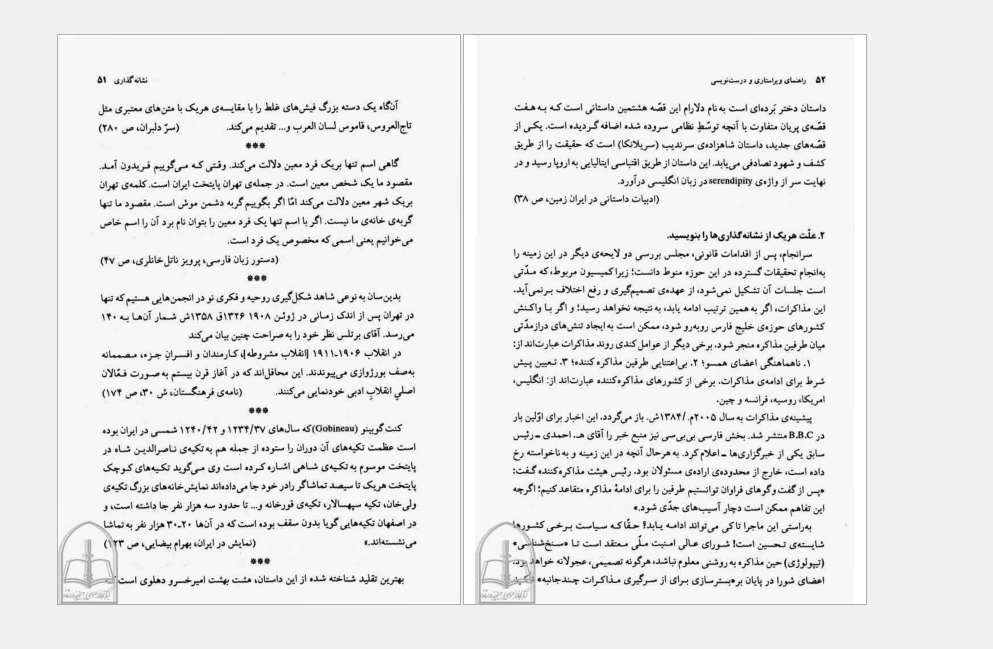 نشانه‌گذاری ۵۱
آنگاه یک دسته بزرگ فیش‌های غلط را با مقایسه‌ی هریک با متن‌های معتبری مثل
تاج‌العروس، قاموس لسان العرب و... تقدیم می‌کند. (سرّ دلبران، ص ۲۸۰)
***
گاهی اسم تنها بریک فرد معین دلالت می‌کند. وقتی که می‌گوییم فریدون آمد.
مقصود ما یک شخص معین است. در جمله‌ی تهران پایتخت ایران است. کلمه‌ی تهران
بریک شهر معین دلالت می‌کند امّا اگر بگوییم گربه دشمن موش است. مقصود ما تنها
گربه‌ی خانه‌ی ما نیست. اگر با اسم تنها یک فرد معین را بتوان نام برد آن را اسم خاص
می‌خوانیم یعنی اسمی که مخصوص یک فرد است.
(دستور زبان فارسی، پرویز ناتل‌خانلری، ص ۴۷)
***
بدین‌سان به نوعی شاهد شکل‌گیری روحیه و فکری نو در انجمن‌هایی هستیم که تنها
در تهران پس از اندک زمانی در ژوئن ۱۹۰۸ ۱۳۲۶ق ۱۳۵۸ش شمار آن‌ها به ۱۴۰
می‌رسد. آقای برتلس نظر خود را به صراحت چنین بیان می‌کند
در انقلاب ۱۹۰۶-۱۹۱۱ [انقلاب مشروطه]، کارمندان و افسرانِ جزء، مصممانه
به‌صف بورژوازی می‌پیوندند. این محافل‌اند که در آغاز قرن بیستم به صورت فعّالان
اصلیِ انقلابِ ادبی خودنمایی می‌کنند. (نامه‌ی فرهنگستان، ش ۳۰، ص ۱۷۴)
***
کنت گوبینو (Gobineau) که سال‌های ۱۲۳۴/۳۷ و ۱۲۴۰/۴۲ شمسی در ایران بوده
است عظمت تکیه‌های آن دوران را ستوده از جمله هم به تکیه‌ی ناصرالدین شاه در
پایتخت موسوم به تکیه‌ی شاهی اشاره کرده است وی می‌گوید تکیه‌های کوچک
پایتخت هریک تا سیصد تماشاگر رادر خود جا می‌داده‌اند نمایش‌خانه‌های بزرگ تکیه‌ی
ولی‌خان، تکیه سپهسالار، تکیه‌ی قورخانه و... تا حدود سه هزار نفر جا داشته است، و
در اصفهان تکیه‌هایی گویا بدون سقف بوده است که در آن‌ها ۲۰-۳۰ هزار نفر به تماشا
می‌نشسته‌اند.» (نمایش در ایران، بهرام بیضایی، ص ۱۲۳)
***
بهترین تقلید شناخته شده از این داستان، هشت بهشت امیرخسرو دهلوی است
۵۲ راهنمای ویراستاری و درست‌نویسی
داستان دختر بَرده‌ای است به نام دلارام این قصّه هشتمین داستانی است که به هفت
قصّه‌ی پریان متفاوت با آنچه توسّطِ نظامی سروده شده اضافه گردیده است. یکی از
قصّه‌های جدید، داستان شاهزاده‌ی سرندیب (سریلانکا) است که حقیقت را از طریق
کشف و شهود تصادفی می‌یابد. این داستان از طریق اقتباسی ایتالیایی به اروپا رسید و در
نهایت سر از واژه‌ی serendipity در زبان انگلیسی درآورد.
(ادبیات داستانی در ایران زمین، ص ۳۸)
۲. علّت هریک از نشانه‌گذاری‌ها را بنویسید.
سرانجام، پس از اقدامات قانونی، مجلس بررسی دو لایحه‌ی دیگر در این زمینه را
به‌انجام تحقیقات گسترده در این حوزه منوط دانست؛ زیرا کمیسیون مربوط، که مدّتی
است جلسات آن تشکیل نمی‌شود، از عهده‌ی تصمیم‌گیری و رفع اختلاف برنمی‌آید.
این مذاکرات، اگر به همین ترتیب ادامه یابد، به نتیجه نخواهد رسید؛ و اگر با واکنش
کشورهای حوزه‌ی خلیج فارس روبه‌رو شود، ممکن است به ایجاد تنش‌های درازمدّتی
میان طرفین مذاکره منجر شود. برخی دیگر از عوامل کندی روند مذاکرات عبارت‌اند از:
۱. ناهماهنگی اعضای همسو؛ ۲. بی‌اعتنایی طرفین مذاکره کننده؛ ۳. تعیین پیش
شرط برای ادامه‌ی مذاکرات. برخی از کشورهای مذاکره‌کننده عبارت‌اند از: انگلیس،
امریکا، روسیه، فرانسه و چین.
پیشینه‌ی مذاکرات به سال ۲۰۰۵م. /۱۳۸۴ش. باز می‌گردد. این اخبار برای اوّلین بار
در B.B.C منتشر شد. بخش فارسی بی‌بی‌سی نیز منبع خبر را آقای هـ. احمدی ــ رئیس
سابق یکی از خبرگزاری‌ها ــ اعلام کرد. به هرحال آنچه در این زمینه و به ناخواسته رخ
داده است، خارج از محدوده‌ی اراده‌ی مسئولان بود. رئیس هیئت مذاکره‌کننده گفت:
«پس از گفت وگوهای فراوان توانستیم طرفین را برای ادامهٔ مذاکره متقاعد کنیم؛ اگرچه
این تفاهم ممکن است دچار آسیب‌های جدّی شود.»
به‌راستی این ماجرا تا کی می‌تواند ادامه یابد! حقّا که سیاست برخی کشورها
شایسته‌ی تحسین است! شورای عالی امنیت ملّی معتقد است تا «سنخ‌شناسی»
(تیپولوژی) حین مذاکره به روشنی معلوم نباشد، هرگونه تصمیمی، عجولانه خواهد بود.
اعضای شورا در پایان بر «بسترسازی برای از سرگیری مذاکرات چندجانبه» تأکید